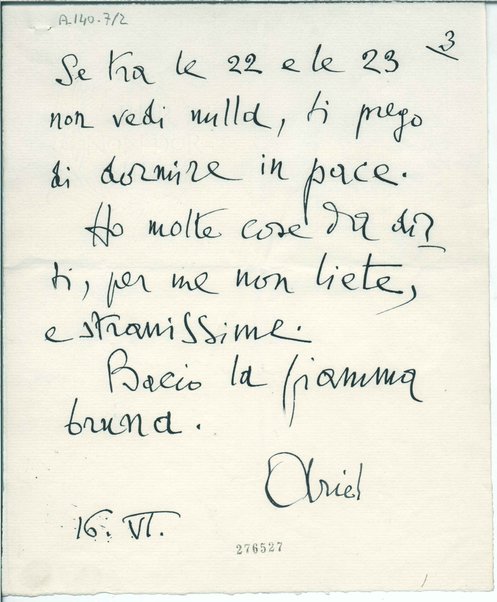 A.140.7/2
3
Se tra le 22 e le 23
non vedi nulla, ti prego
di dormire in pace.
Ho molte cose da dir
ti, per me non liete,
e stranissime.
Bacio la fiamma
bruna.
Ariel
16. VI.
276527